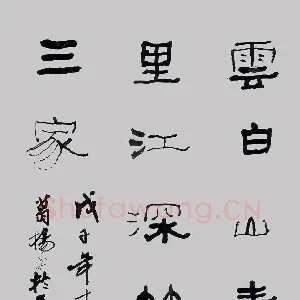 雲白山青
里江深竹
三家
戊子年
葛楊
Shufawang.CN